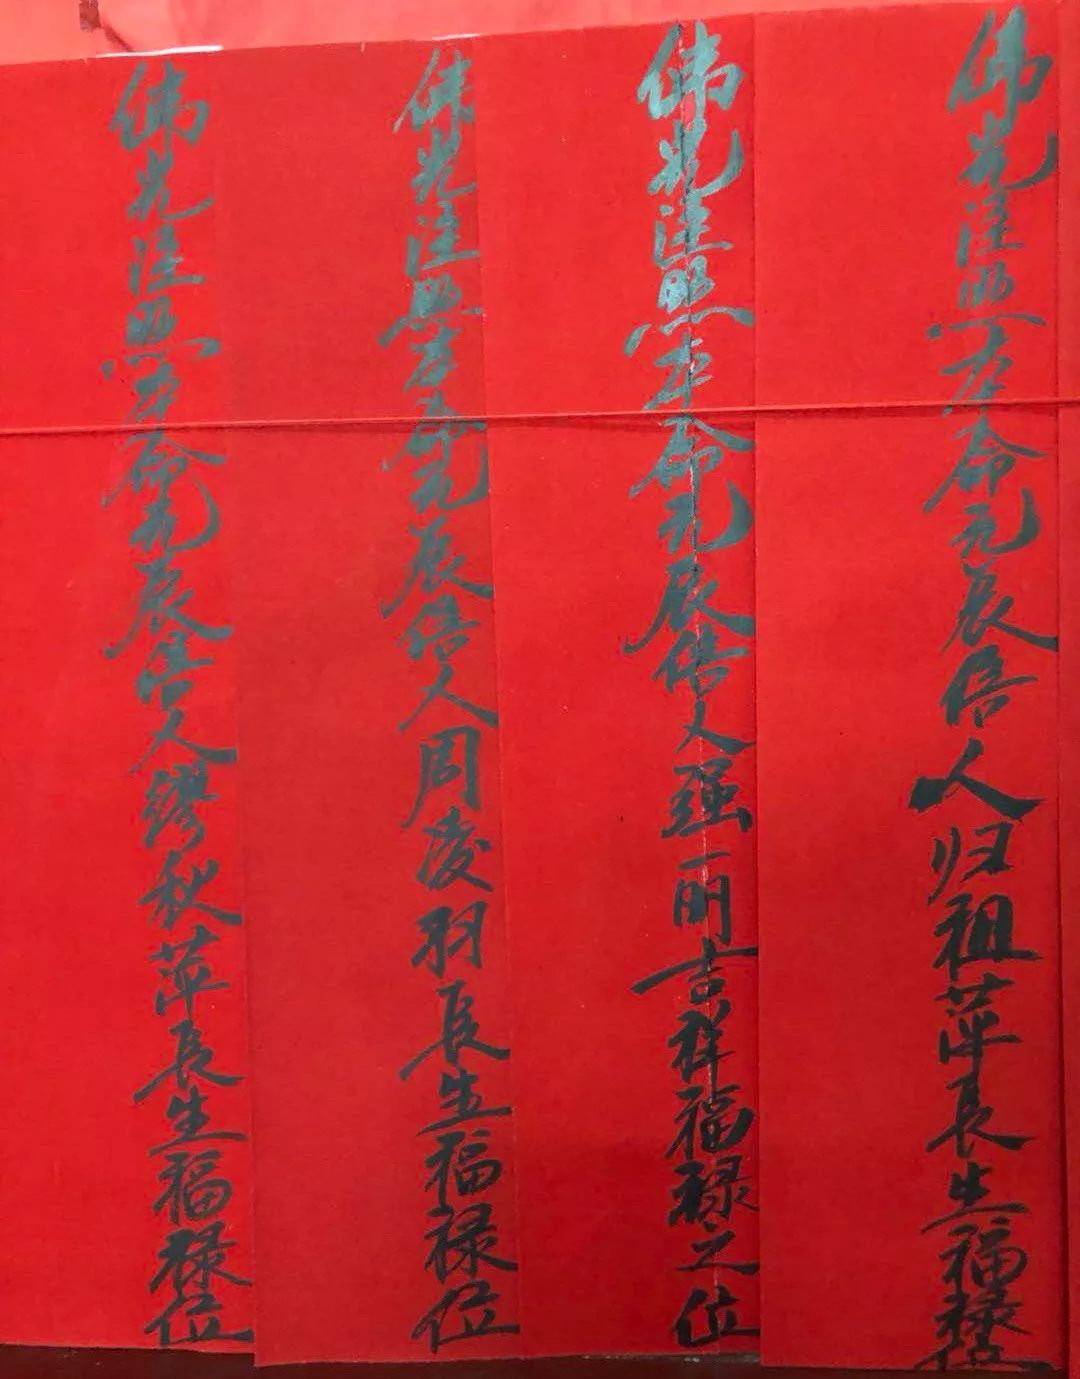 佛光注照本命元辰信人归祖萍长生福禄位
佛光注照本命元辰信人强一丽吉祥福禄之位
佛光注照本命元辰信人周凌羽长生福禄位
佛光注照本命元辰信人缪秋萍长生福禄位